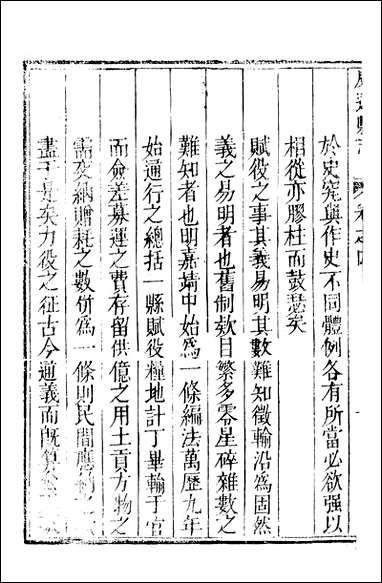 於史究與作史不同體例各有所當必欲强以
相從亦膠柱而鼓瑟矣
賦役之事其義易明其數難知徵輸沿爲固然
義之易明者也舊制欵目繁多零星碎雜數之
難知者也明嘉靖中始爲一條編法萬歷九年
始通行之總括一縣賦役糧地計丁畢輸于官
而僉差募運之費存留供億之用土貢方物之
需交納贈耗之數併爲一條則民間應
盡于是矣力役之征古今通義而旣算